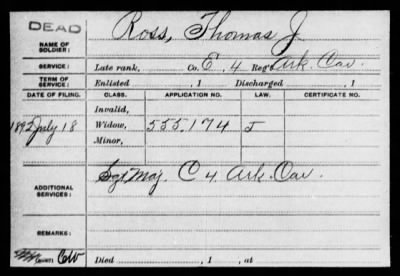 DEAD
NAME OF SOLDIER: Ross, Thomas J.
SERVICE: Late rank, Co. E, 4 Reg't Ark. Cav.
TERM OF SERVICE: Enlisted , 1 Discharged , 1
DATE OF FILING. CLASS. APPLICATION NO. LAW. CERTIFICATE NO.
Invalid,
1892 July 18 Widow, 555,174 J
Minor,
ADDITIONAL SERVICES: Sgt Maj. C 4 Ark. Cav.
REMARKS:
Died , 1 , at